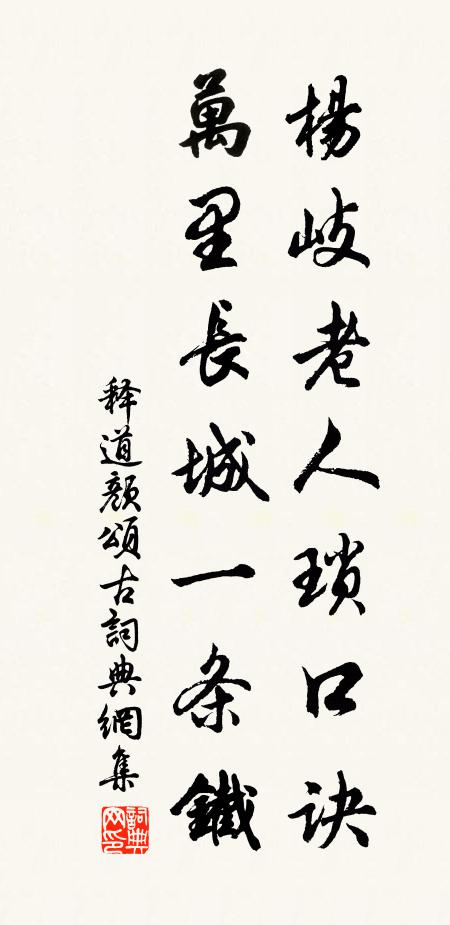 楊岐老人瑣口訣
萬里長城一条鐵
释道颜頌古詞典網集
詞典网印